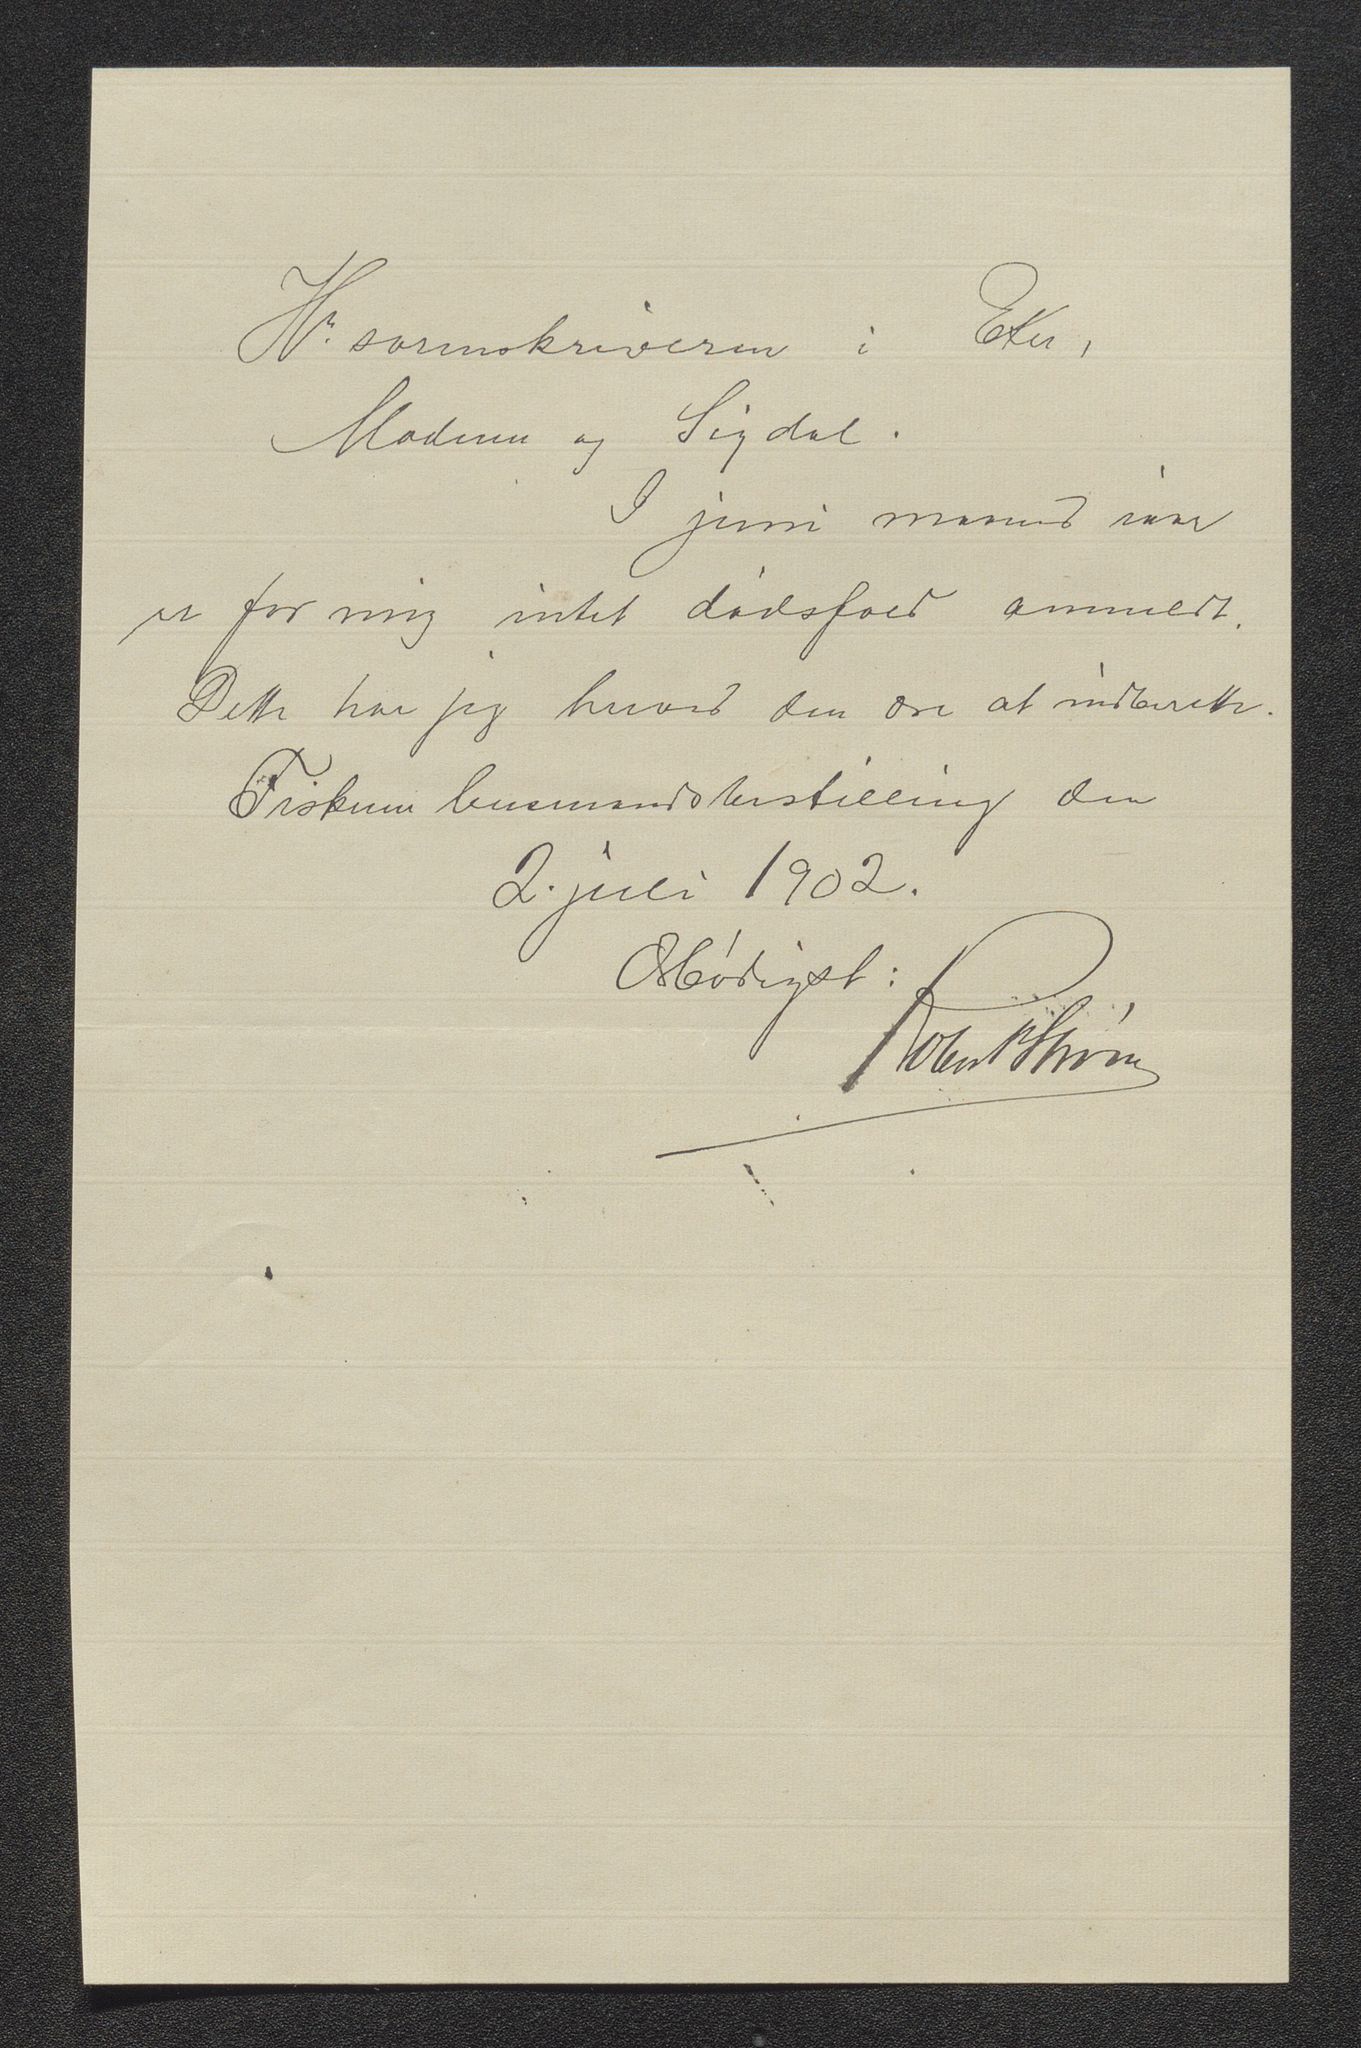 Hr. sorenskriveren i Eker,
Modum og Sigdal.
I juni maaned iaar
er for mig intet dødsfald anmeldt.
Dette har jeg herved den ære at indberette.
Fiskum lensmandsbestilling den
2. juli 1902.
Ærbødigst:
Robert Strøm